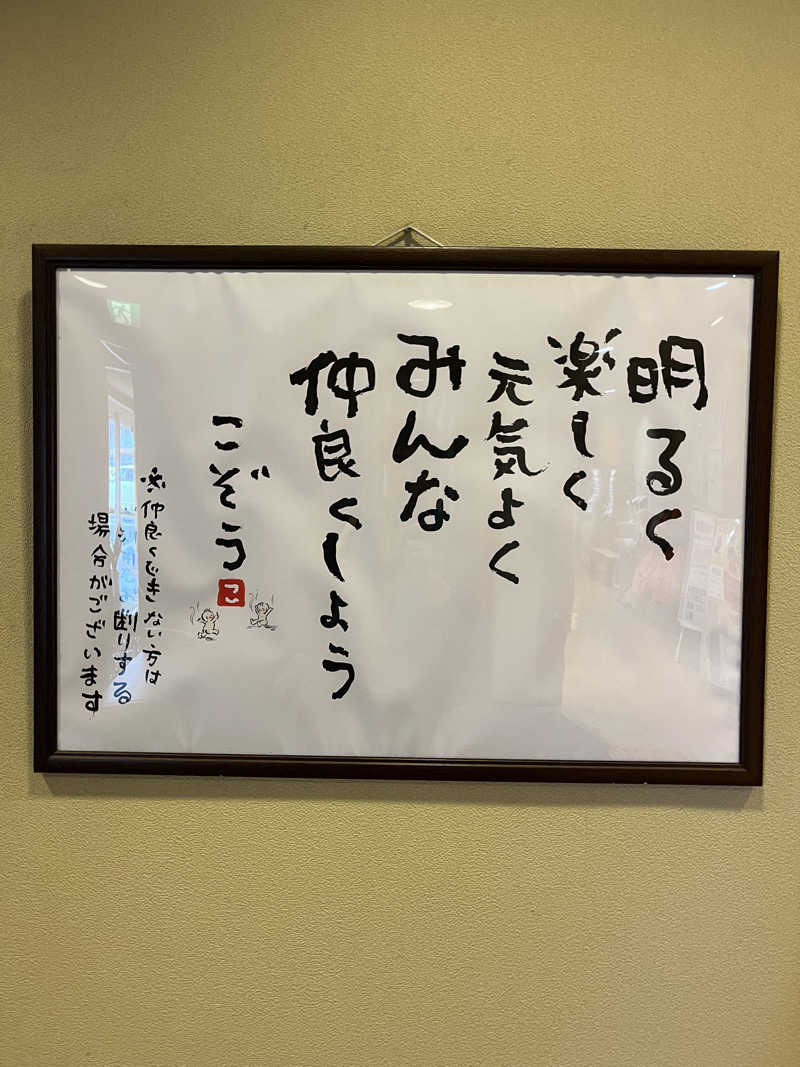 明るく
楽しく
元気よく
みんな
仲良くしよう
こぞう
こ
※仲良くできない方は
断りする
場合がございます